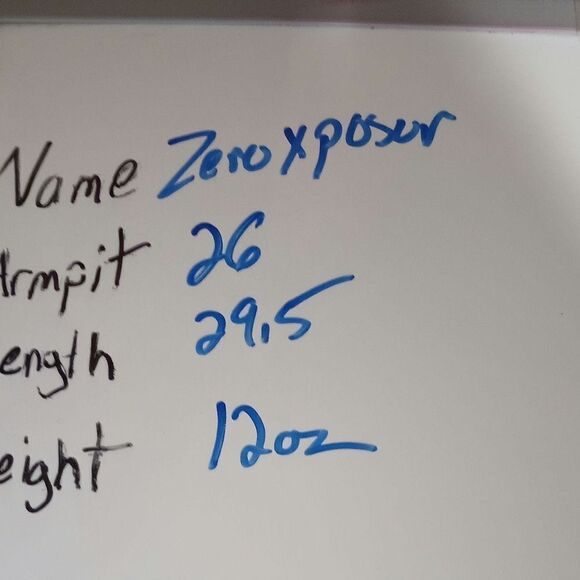 Name Zero Xposur
Armpit 26
ength 29.5
eight 12oz